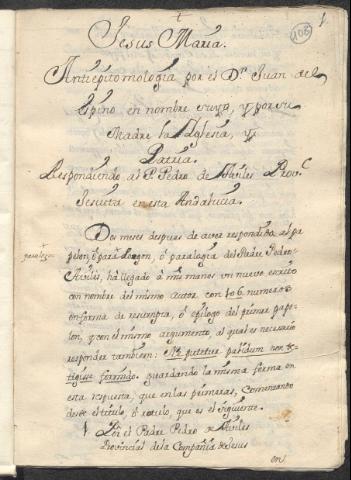 †
1
106
Jesus Maria.
Antiepitomologia por el Dr. Juan del
Espino en nombre suyo, y por su
Madre la Yglesia, y
Patria.
Respondiendo al P. Pedro de Aviles Prov.l
Jesuita en esta Andalucia.
Dos meses despues de aver respondido al pa
pelon, o para logon, o paralogia del Padre Pedro
Aviles, ha llegado à mis manos, un nuevo escrito
con nombre del mismo Autor, con 106 numeros
en forma de resumpta, ò epilogo del primer pape-
lon, y con el mismo argumento, al qual es necesario
responder tambien: Ne putetur pallidum non te-
tigisse formido. guardando la misma forma en
esta respuesta, que en las primeras, comenzando
desde el titulo, ò rotulo, que es el siguiente.
Por el Padre Pedro de Aviles
Provincial de la Compañia de Jesus
en